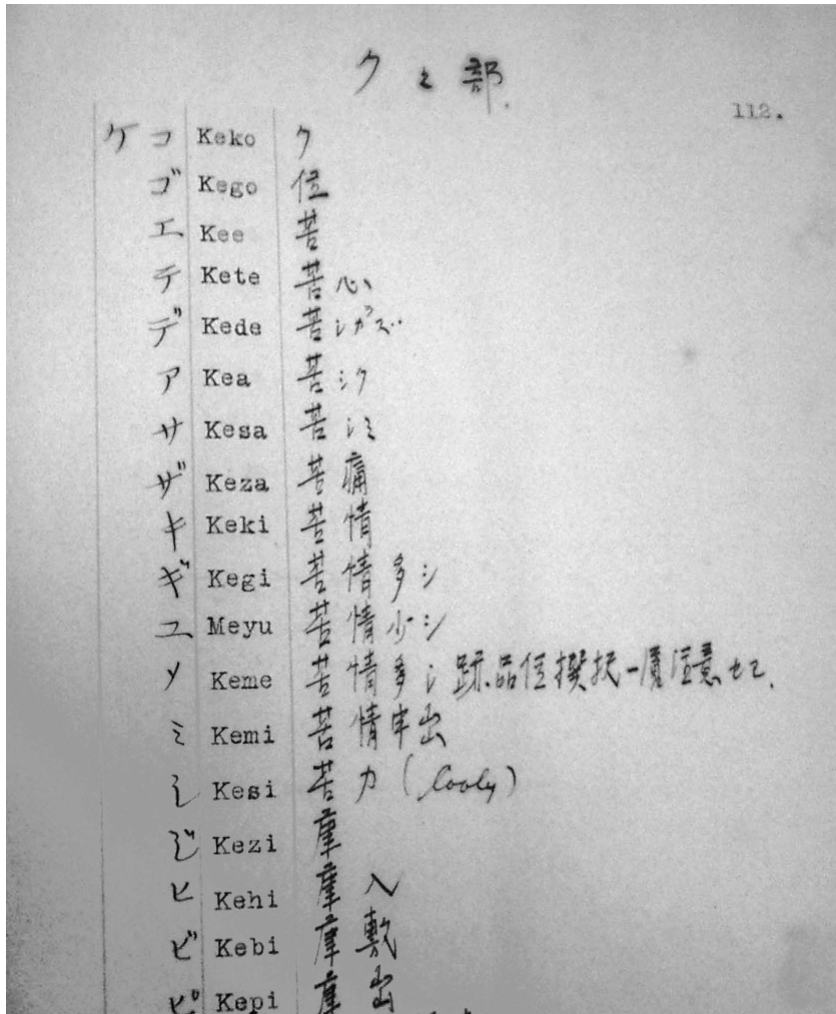 ク之部
112.
ケ コ Keko ク
ゴ Kego 位
エ Kee 苦
テ Kete 苦心
デ Kede 苦シカラズ
ア Kea 苦シク
サ Kesa 苦シミ
ザ Keza 苦痛
キ Keki 苦情
ギ Kegi 苦情多シ
ユ Meyu 苦情少シ
メ Keme 苦情多シ 品位撰択一層注意セヨ
ミ Kemi 苦情申出
シ Kesi 苦力 (Cooly)
ジ Kezi
ヒ Kehi 入
ビ Kebi 敷
ピ Kepi 出